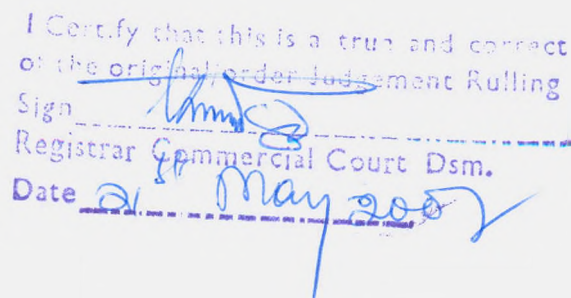 I Certify that this is a true and correct
of the original/order Judgement Rulling
Sign
Registrar Commercial Court Dsm.
Date 21st May 2007